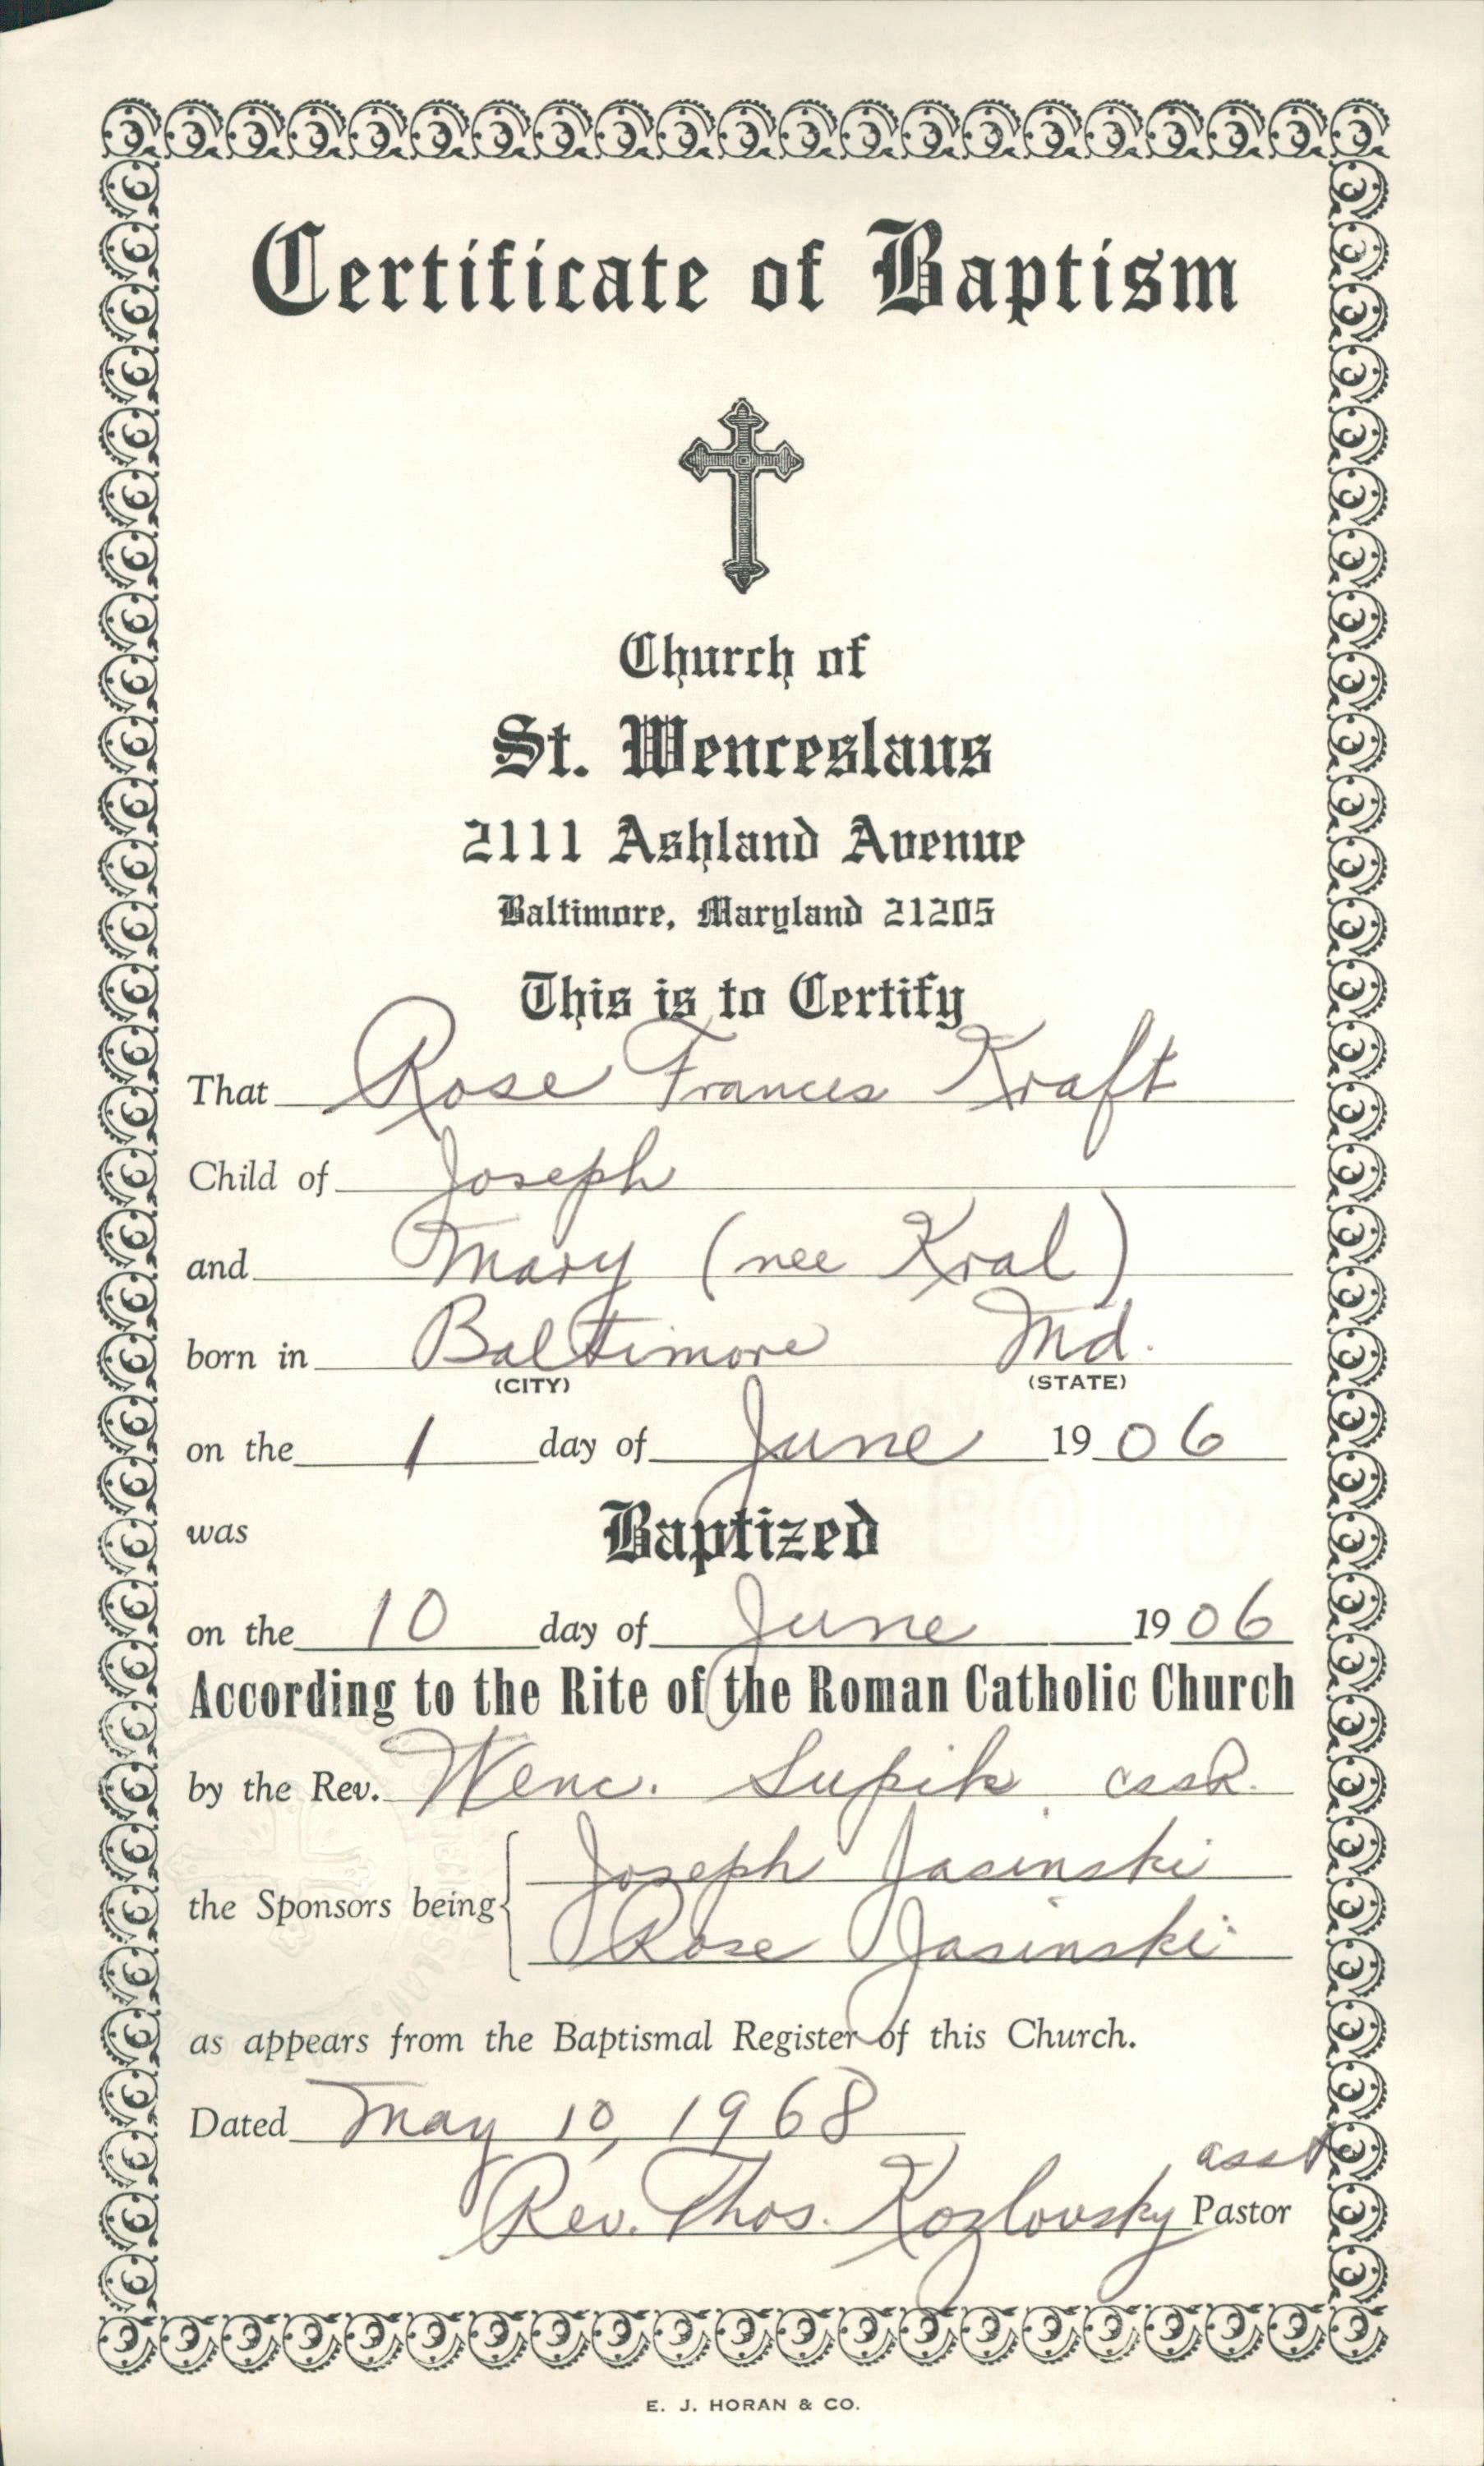 Certificate of Baptism
Church of
St. Wenceslaus
2111 Ashland Avenue
Baltimore, Maryland 21205
This is to Certify
That Rose Frances Kraft
Child of Joseph
and Mary (nee Kral)
born in Baltimore Md.
(CITY) (STATE)
on the 1 day of June 1906
was Baptized
on the 10 day of June 1906
According to the Rite of the Roman Catholic Church
by the Rev. Wenc. Supik CSSR.
the Sponsors being Joseph Jasinski
Rose Jasinski
as appears from the Baptismal Register of this Church.
Dated May 10, 1968
asst
Rev. Thos. Kozlovsky Pastor
E. J. HORAN & CO.